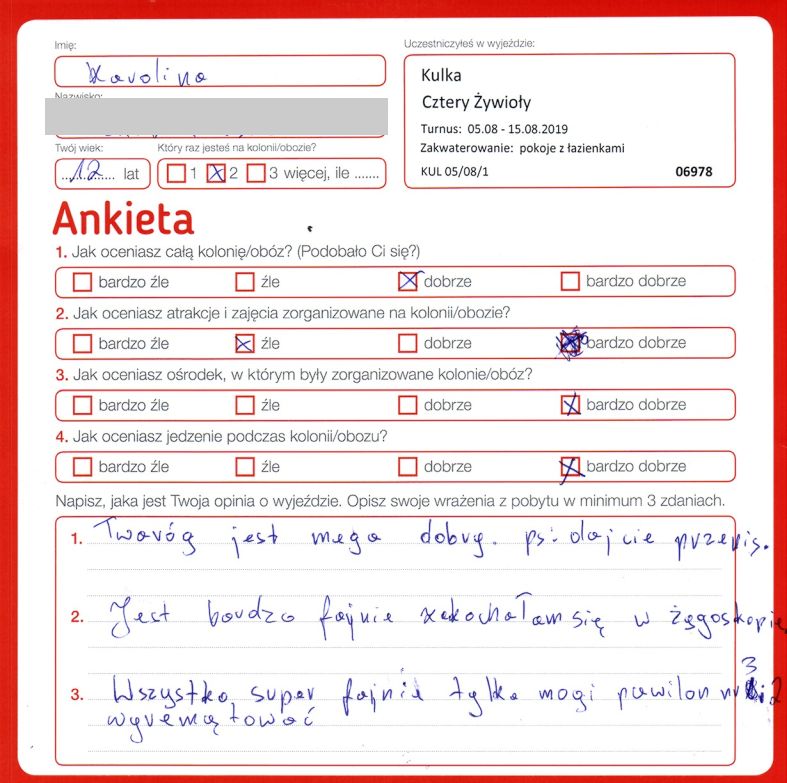 Imię:
Karolina
Nazwisko:
Twój wiek:
12 lat
Który raz jesteś na kolonii/obozie?
1 2 3 więcej, ile .......
Uczestniczyłeś w wyjeździe:
Kulka
Cztery Żywioły
Turnus: 05.08 - 15.08.2019
Zakwaterowanie: pokoje z łazienkami
KUL 05/08/1 06978
Ankieta
1. Jak oceniasz całą kolonię/obóz? (Podobało Ci się?)
bardzo źle źle dobrze bardzo dobrze
2. Jak oceniasz atrakcje i zajęcia zorganizowane na kolonii/obozie?
bardzo źle źle dobrze bardzo dobrze
3. Jak oceniasz ośrodek, w którym były zorganizowane kolonie/obóz?
bardzo źle źle dobrze bardzo dobrze
4. Jak oceniasz jedzenie podczas kolonii/obozu?
bardzo źle źle dobrze bardzo dobrze
Napisz, jaka jest Twoja opinia o wyjeździe. Opisz swoje wrażenia z pobytu w minimum 3 zdaniach.
1. Twaróg jest mega dobry. ps: dajcie przepis.
2. Jest bardzo fajnie zakochałam się w
3. Wszystko super fajnie tylko mogi pawilon nr 3 i 2
wyremątować